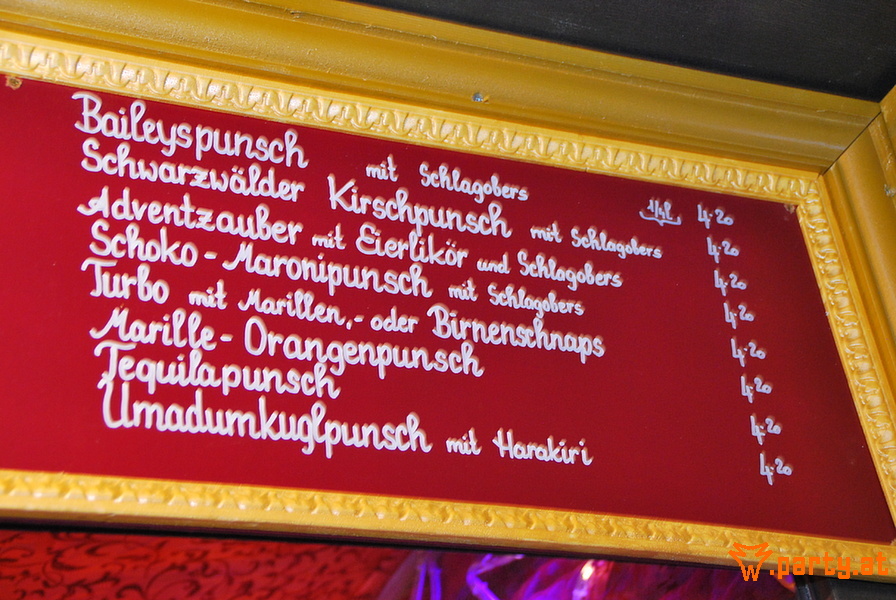 Baileyspunsch mit Schlagobers 1/4l 4.20
Schwarzwälder Kirschpunsch mit Schlagobers 4.20
Adventzauber mit Eierlikör und Schlagobers 4.20
Schoko-Maronipunsch mit Schlagobers 4.20
Turbo mit Marillen,- oder Birnenschnaps 4.20
Marille-Orangenpunsch 4.20
Tequilapunsch 4.20
Umadumkuglpunsch mit Harakiri 4.20
w.party.at